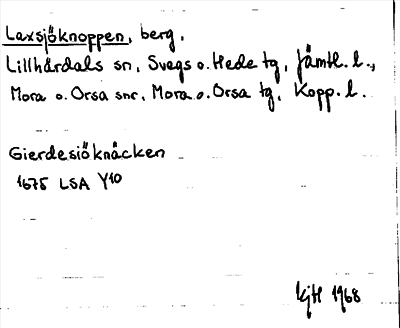 Laxsjöknoppen, berg.
Lillhärdals sn, Svegs o. Hede tg, Jämtl. l.,
Mora o. Orsa snr, Mora o. Orsa tg, Kopp. l.
Gierdesiöknäcken
1675 LSA Y10
kjH 1968